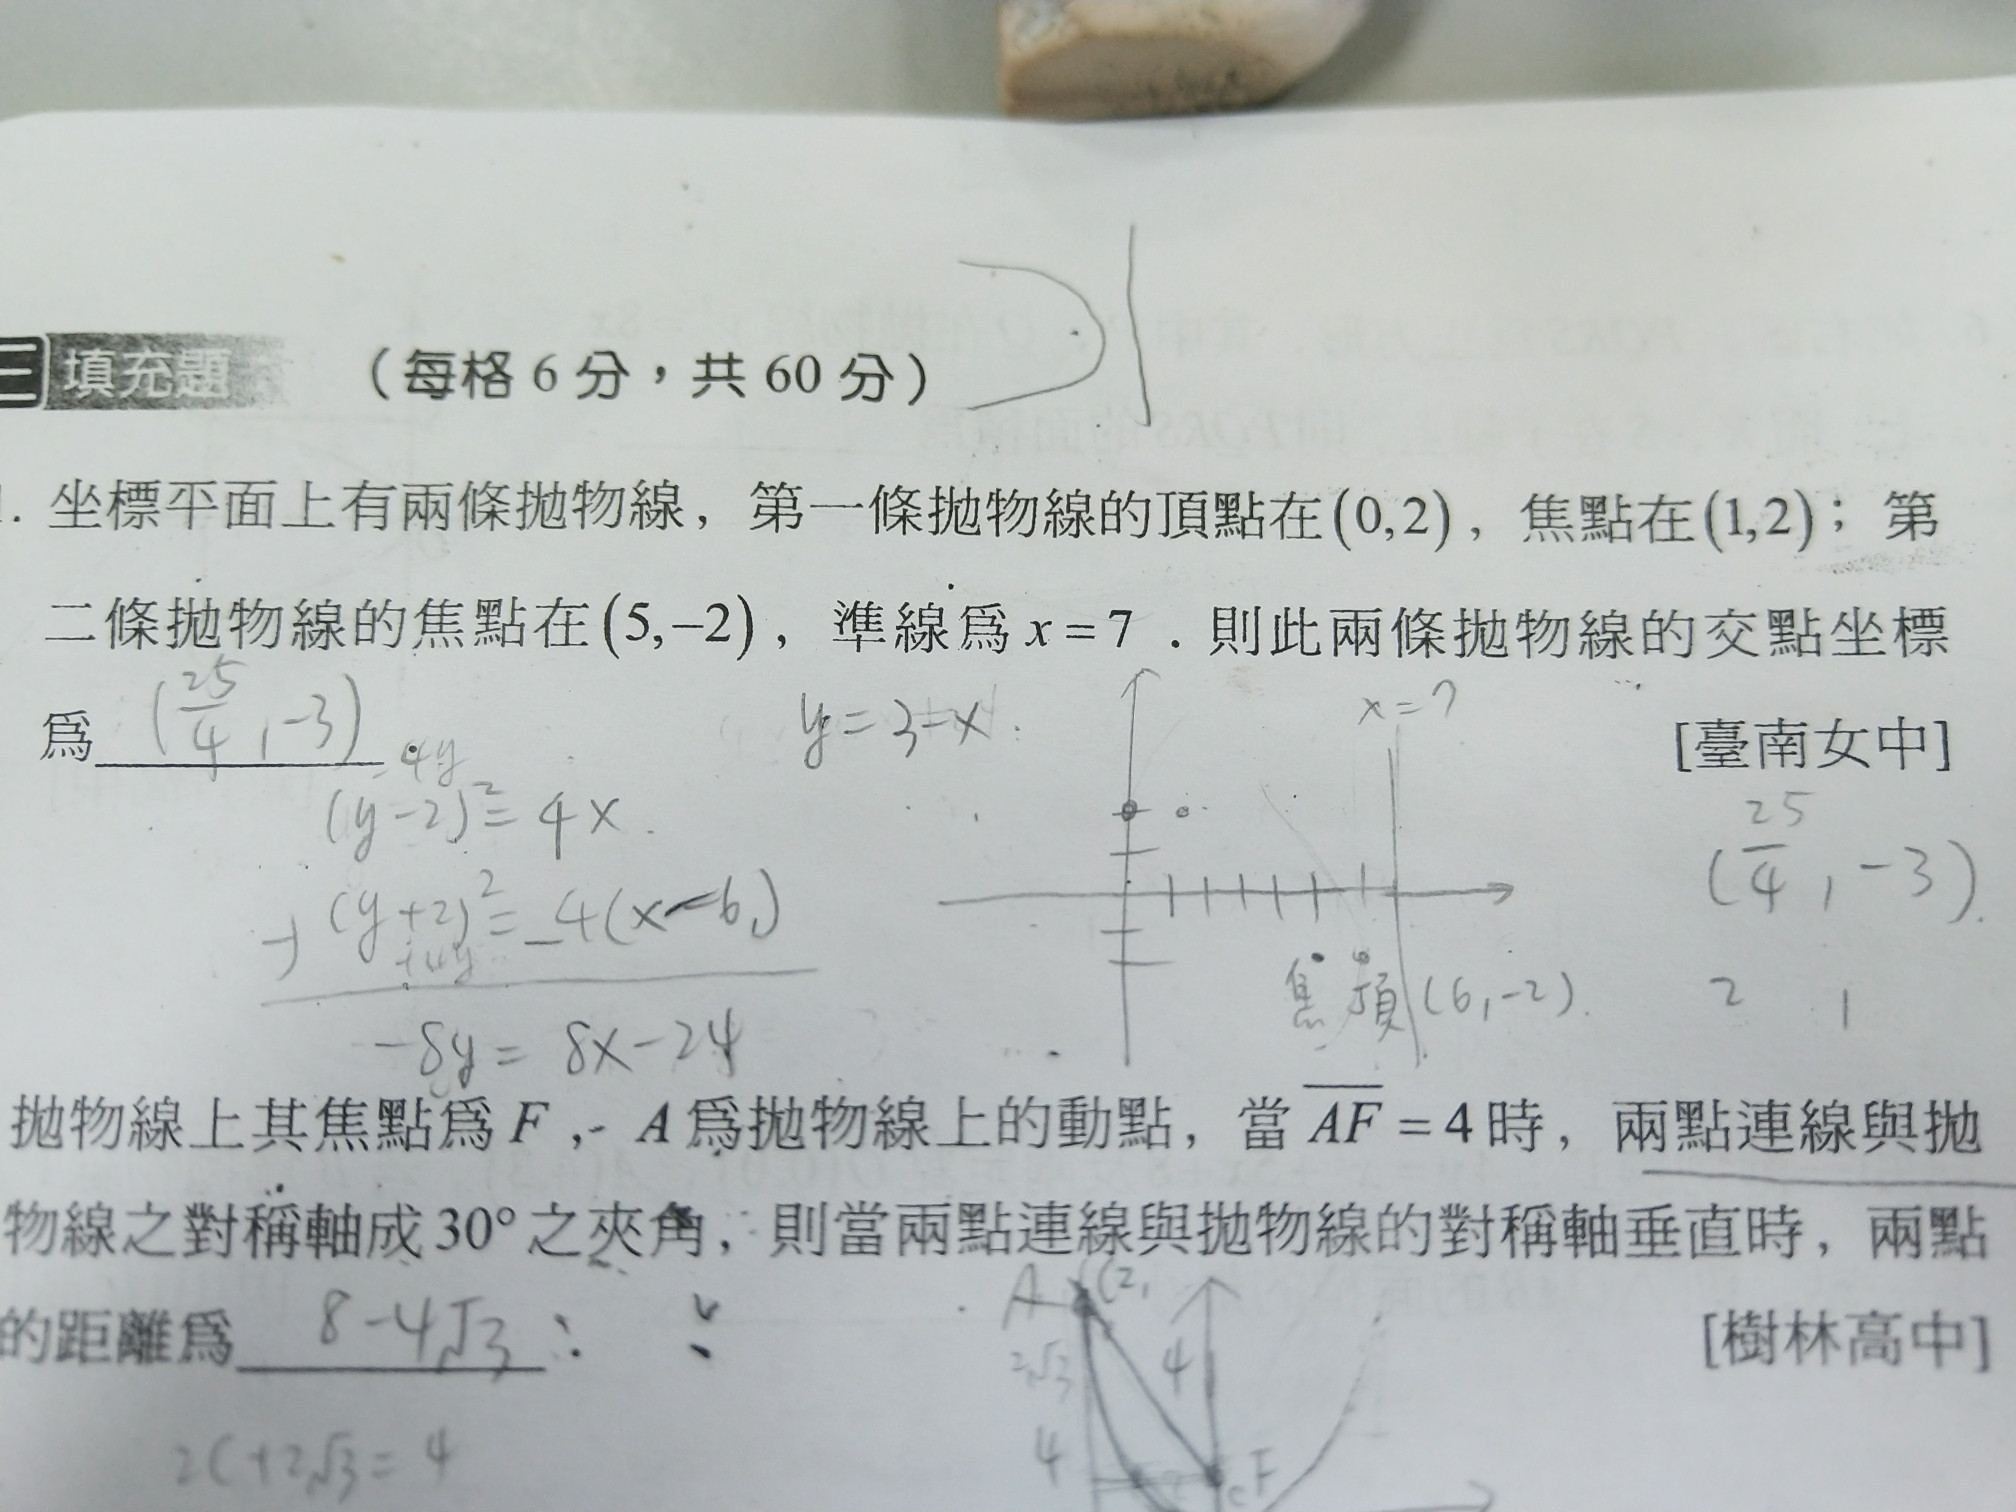 三 填充題 (每格 6 分,共 60 分)
1. 坐標平面上有兩條拋物線,第一條拋物線的頂點在(0,2),焦點在(1,2);第
二條拋物線的焦點在(5,−2),準線爲 x = 7 .則此兩條拋物線的交點坐標
爲 (25/4, -3) [臺南女中]
y = 3 - x
x = 7
-4y
(y-2)² = 4x
25/4, -3)
-) (y+2)² = -4(x-6)
+4y
焦 頂 (6, -2)
2 1
-8y = 8x - 24
拋物線上其焦點爲 F , A 爲拋物線上的動點,當 AF = 4 時,兩點連線與拋
物線之對稱軸成 30° 之夾角,則當兩點連線與拋物線的對稱軸垂直時,兩點
的距離爲 8-4√3 [樹林高中]
A
2√3
4
4
F
2C+2√3 = 4